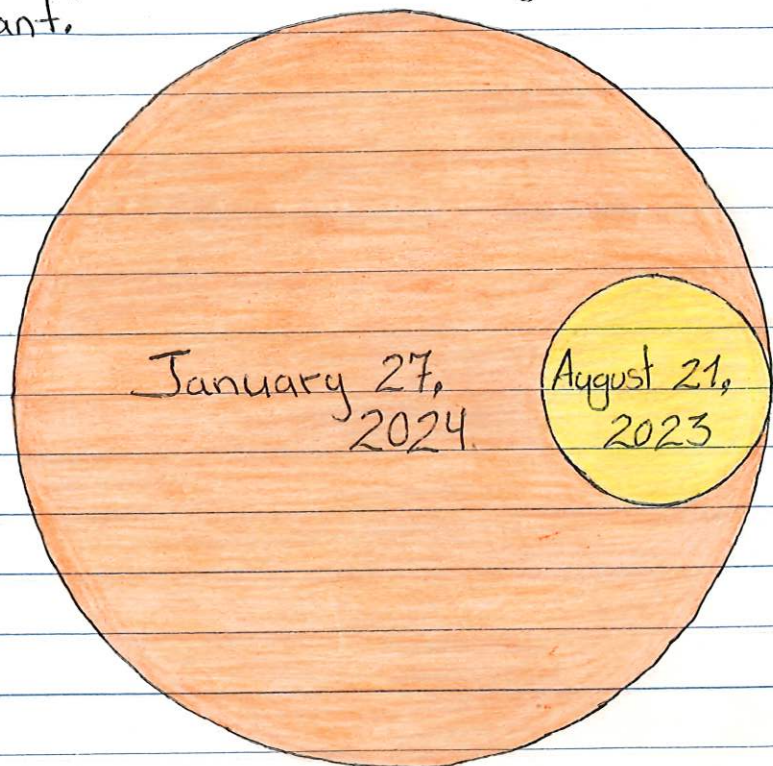 ant.
January 27,
2024.
August 21,
2023